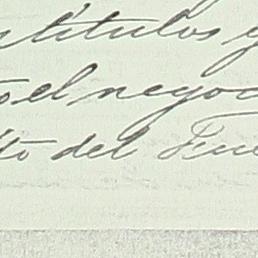 títulos y
o el negoc
to del Fue